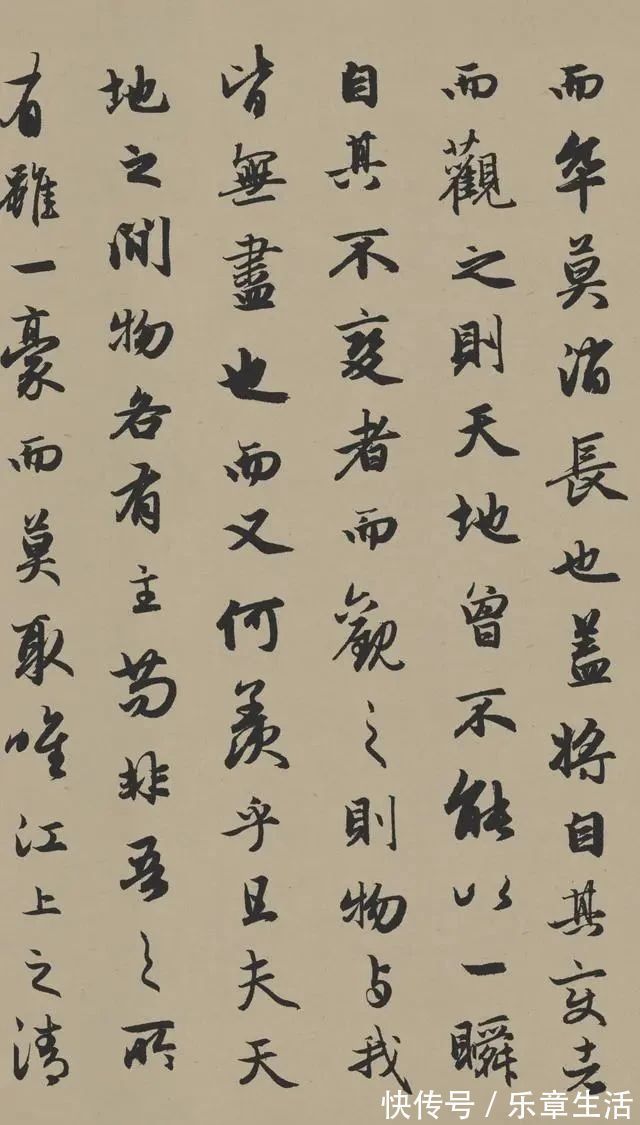 而卒莫消長也蓋將自其变者
而觀之則天地曾不能以一瞬
自其不變者而觀之則物与我
皆無盡也而又何羨乎且夫天
地之間物各有主苟非吾之所
有雖一豪而莫取唯江上之清
快传号／乐章生活